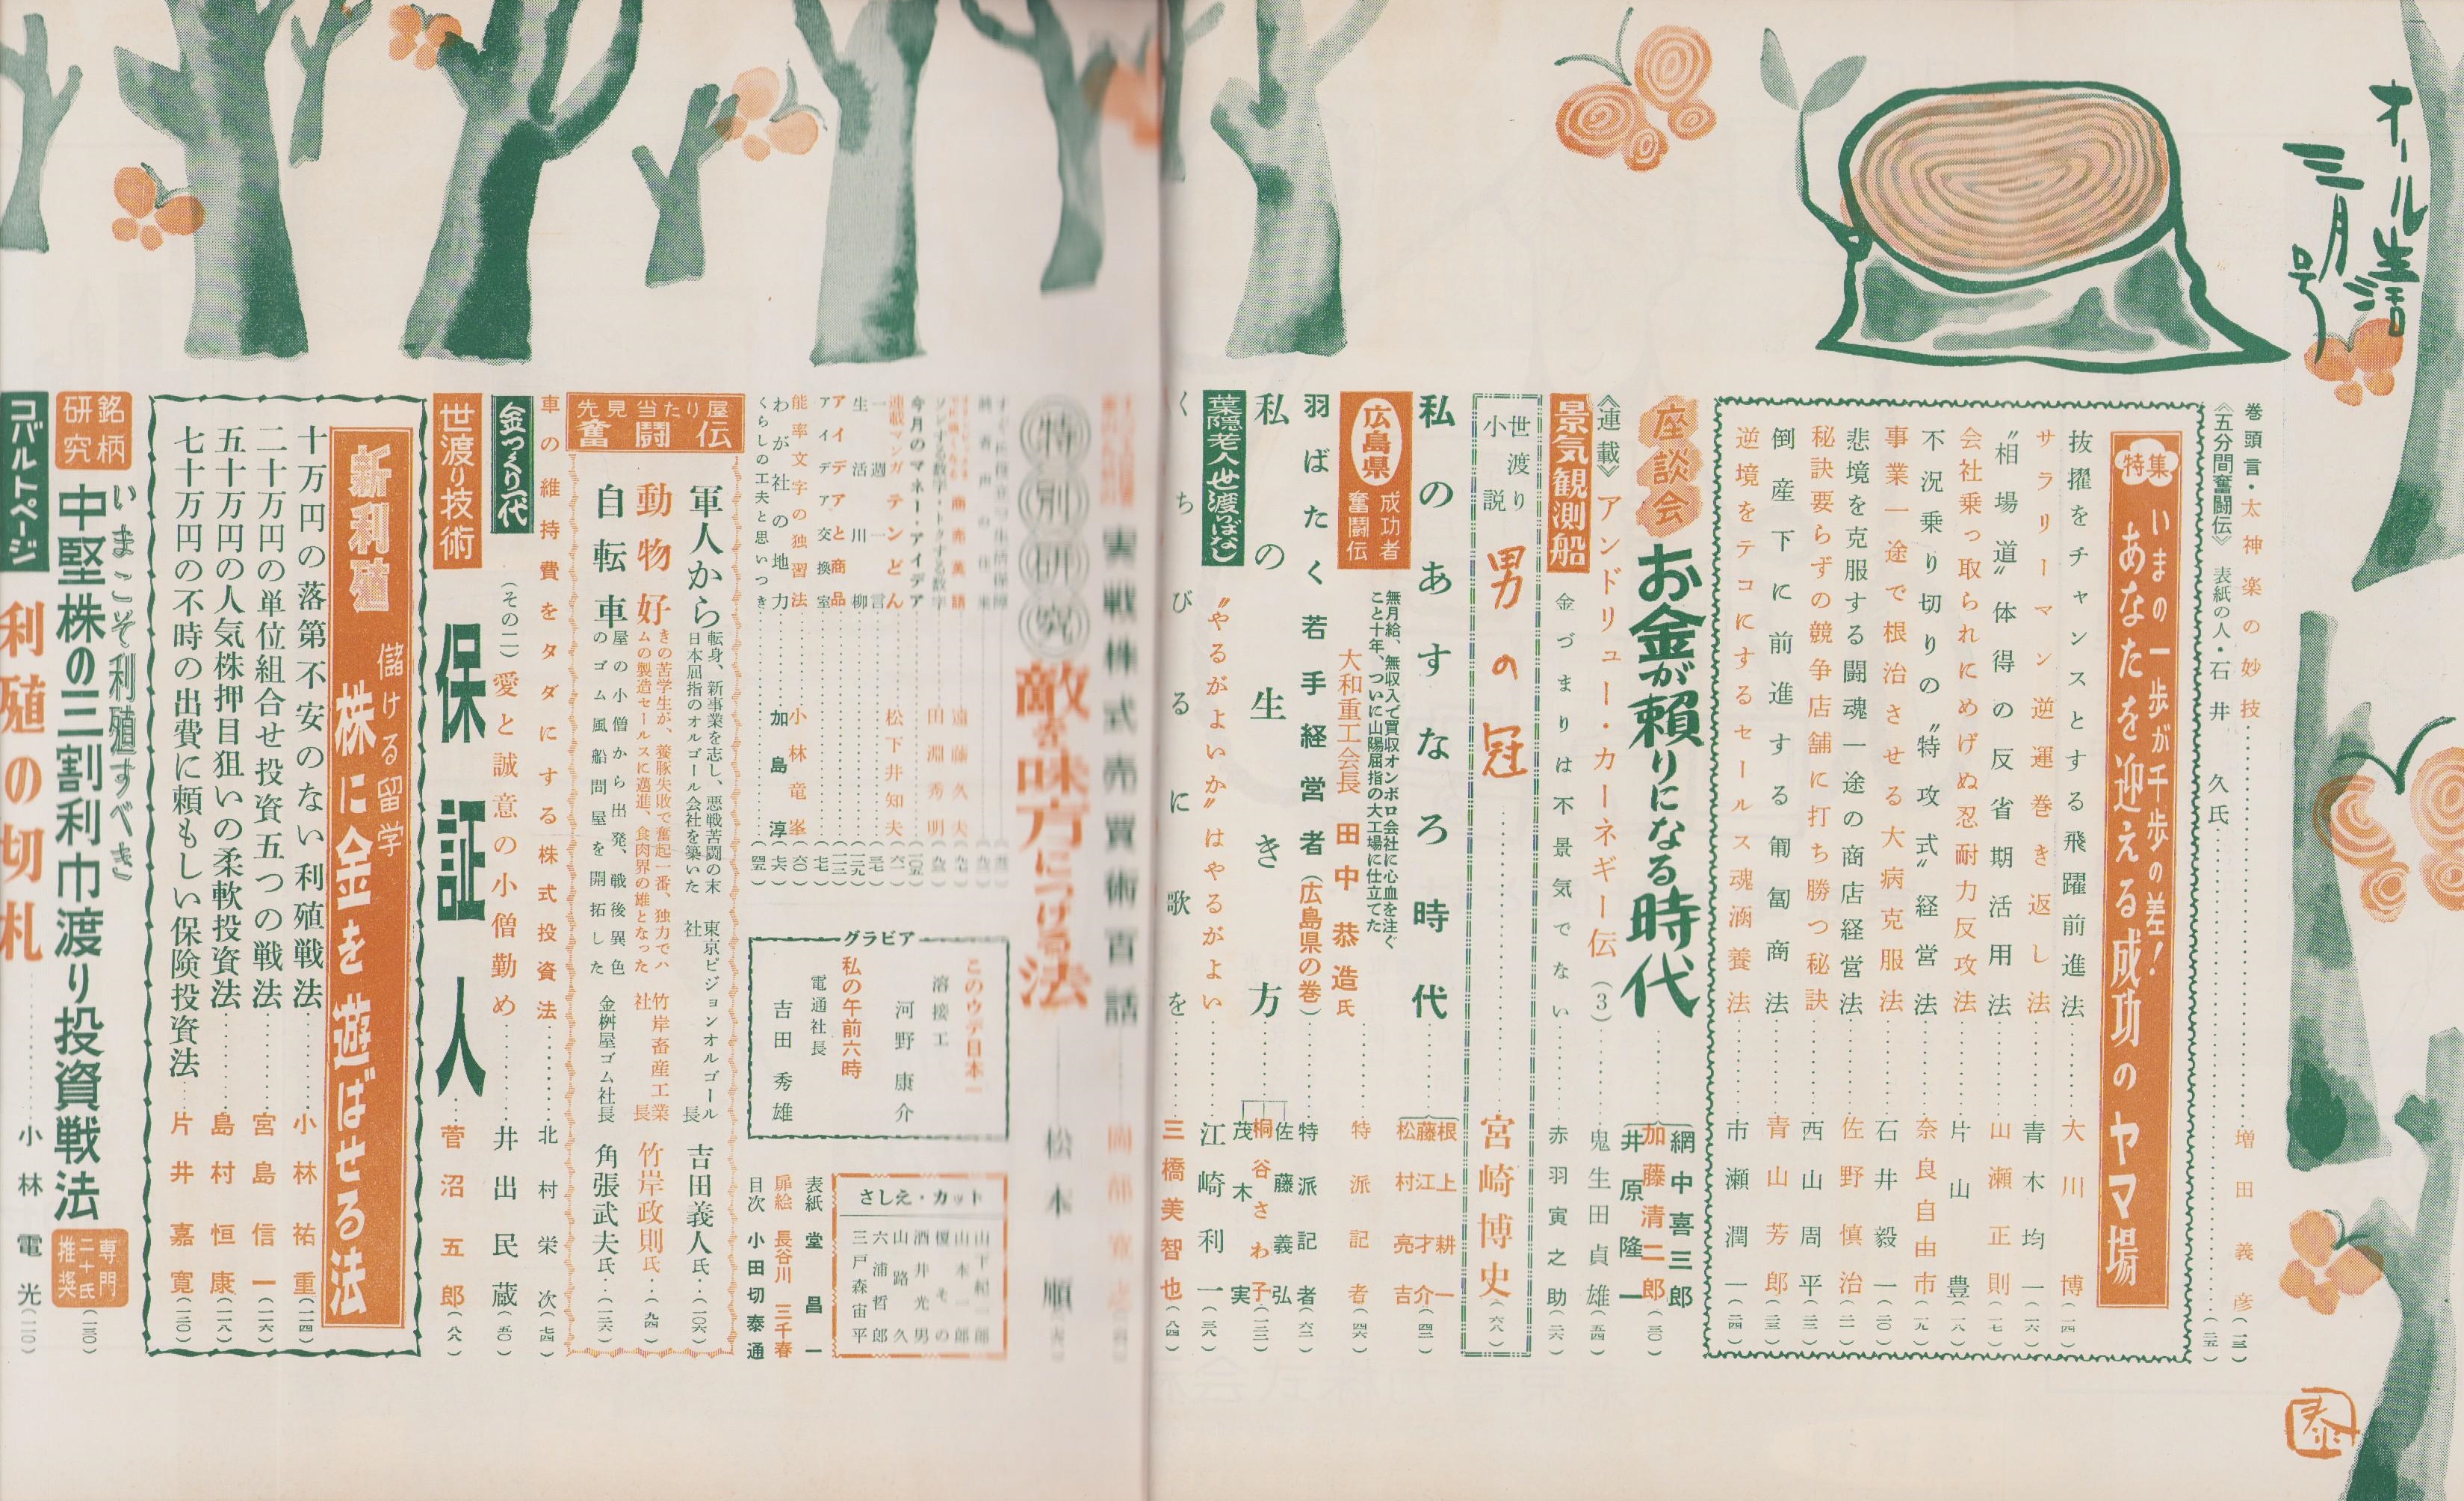 オール生活
三月号
巻頭言・太神楽の妙技……増田義彦(一三)
《五分間奮闘伝》表紙の人・石井 久氏……(一三五)
特集
いまの一歩が千歩の差!
あなたを迎える成功のヤマ場
抜擢をチャンスとする飛躍前進法……大川博(一四)
サラリーマン逆運巻き返し法……青木均一(一六)
“相場道”体得の反省期活用法……山瀬正則(一七)
会社乗っ取られにめげぬ忍耐力反攻法……片山豊(一八)
不況乗り切りの“特攻式”経営法……奈良自由市(一九)
事業一途で根治させる大病克服法……石井毅一(二〇)
悲境を克服する闘魂一途の商店経営法……佐野慎治(二一)
秘訣要らずの競争店舗に打ち勝つ秘訣……西山周平(二二)
倒産下に前進する匍匐商法……青山芳郎(二三)
逆境をテコにするセールス魂涵養法……市瀬潤一(二四)
座談会
お金が頼りになる時代……
網中喜三郎
加藤清二郎
井原隆一
(三〇)
《連載》アンドリュー・カーネギー伝(3)……鬼生田貞雄(五四)
景気観測船
金づまりは不景気でない……赤羽寅之助(二六)
世渡り小説
男の冠……宮崎博史(六八)
私のあすなろ時代……
根上耕一
藤江才介
松村亮吉
(四二)
広島県
成功者奮闘伝
無月給、無収入で買収オンボロ会社に心血を注ぐ
こと十年、ついに山陽屈指の大工場に仕立てた
大和重工会長 田中恭造氏……特派記者(四六)
羽ばたく若手経営者(広島県の巻)……特派記者(六二)
私の生き方……
佐藤義弘
桐谷さわ子
茂木実
(一三二)
葉隠老人世渡りばなし
“やるがよいか”はやるがよい……江崎利一(三八)
くちびるに歌を……三橋美智也(八四)
実戦株式売買術百話
特別研究
敵を味方につける法……松木順
今月のマネー・アイデア
連載マンガ テンどん……松下井知夫(六一)
一週一言……
生活川柳……(一三九)
アイデアと商品……
アイデア交換室……(七七)
能率文字の独習法……小林竜峯(六〇)
わが社の地力……加島淳(七六)
くらしの工夫と思いつき……
グラビア
このウデ日本一
溶接工
河野康介
私の午前六時
電通社長
吉田秀雄
さしえ・カット
山本一郎
榎その
酒井光男
山路久
六浦哲郎
三戸森宙平
表紙 堂昌一
扉絵 長谷川三千春
目次 小田切泰通
先見当たり屋
奮闘伝
軍人から
転身、新事業を志し、悪戦苦闘の末
日本屈指のオルゴール会社を築いた
東京ピジョンオルゴール社長 吉田義人氏……(一〇六)
動物好
きの苦学生が、養豚失敗で奮起一番、独力でハ
ムの製造セールスに邁進、食肉界の雄となった
竹岸畜産工業社長 竹岸政則氏……(九四)
自転車
屋の小僧から出発、戦後異色
のゴム風船問屋を開拓した
金桝屋ゴム社長 角張武夫氏……(一二六)
車の維持費をタダにする株式投資法……北村栄次(七四)
金つくり一代
(その二)愛と誠意の小僧勤め……井出民蔵(五〇)
世渡り技術
保証人……菅沼五郎(八八)
新利殖
儲ける留学
株に金を遊ばせる法
十万円の落第不安のない利殖戦法……小林祐重(一一四)
二十万円の単位組合せ投資五つの戦法……宮島信一(一一六)
五十万円の人気株押目狙いの柔軟投資法……島村恒康(一一八)
七十万円の不時の出費に頼もしい保険投資法……片井嘉寛(一二〇)
銘柄研究
いまこそ利殖すべき
中堅株の三割利巾渡り投資戦法
専門二十氏推奨
(一三〇)
コバルトページ
利殖の切札……小林電光(一一〇)
泰